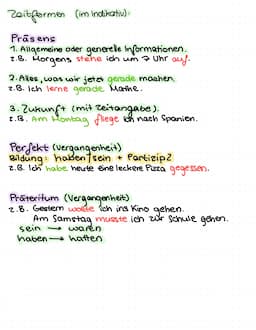 Zeitformen (im Indikativ):
Präsens
1. Allgemeine oder generelle Informationen.
z.B. Morgens stehe ich um 7 Uhr auf.
2. Alles, was wir jetzt gerade machen.
z.B. Ich lerne gerade Mathe.
3. Zukunft (mit Zeitangabe).
z.B. Am Montag fliege ich nach Spanien.
Perfekt (Vergangenheit)
Bildung: haben/sein + Partizip2
z.B. Ich habe heute eine leckere Pizza gegessen.
Präteritum (Vergangenheit)
z.B. Gestern wollte ich ins Kino gehen.
Am Samstag musste ich zur Schule gehen.
sein → waren
haben → hatten